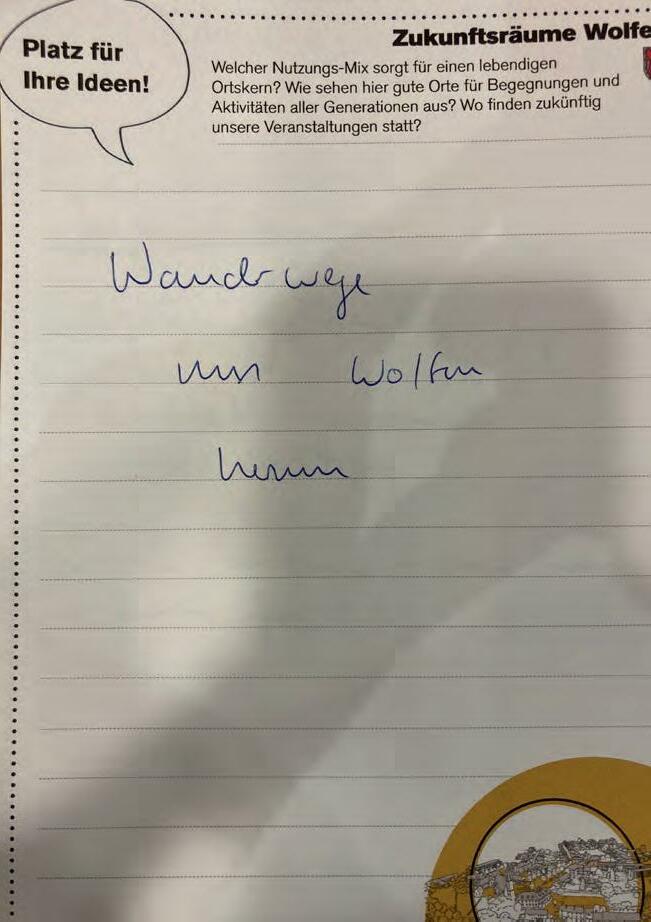 Platz für
Ihre Ideen!
Zukunftsräume Wolfe
Welcher Nutzungs-Mix sorgt für einen lebendigen
Ortskern? Wie sehen hier gute Orte für Begegnungen und
Aktivitäten aller Generationen aus? Wo finden zukünftig
unsere Veranstaltungen statt?
Wanderwege
um Wolfen
herum